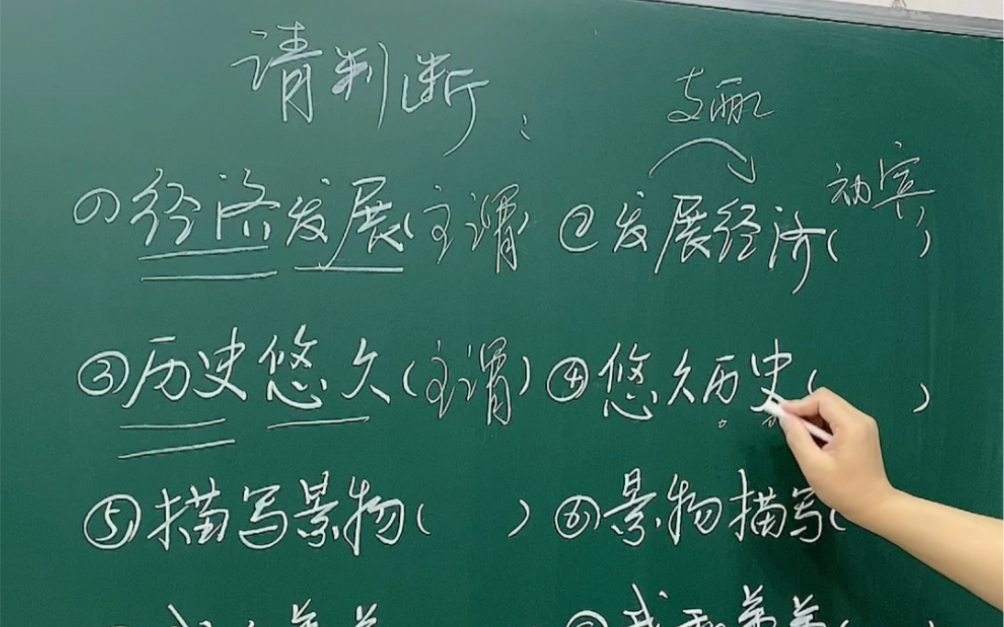 请判断：
支配
①经济发展(主谓) ②发展经济(动宾)
③历史悠久(主谓) ④悠久历史( )
⑤描写景物( ) ⑥景物描写(